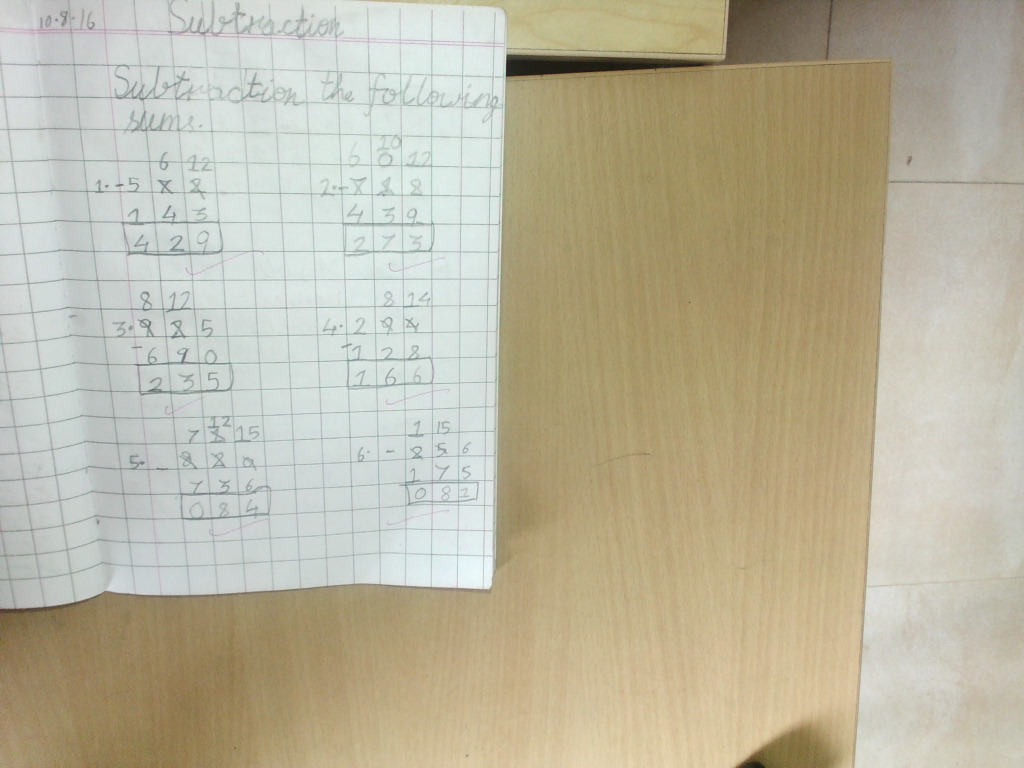 10.8.16 Subtraction
Subtraction the following
sums.
6 12
1. - 5 7 2
1 4 3
4 2 9
10
6 0 12
2. - 7 1 2
4 3 9
2 7 3
8 12
3. 9 2 5
- 6 9 0
2 3 5
8 14
4. 2 9 4
- 1 2 8
1 6 6
12
7 1 15
5. -
7 3 6
0 8 4
1 15
6. - 2 5 6
1 7 5
0 8 1